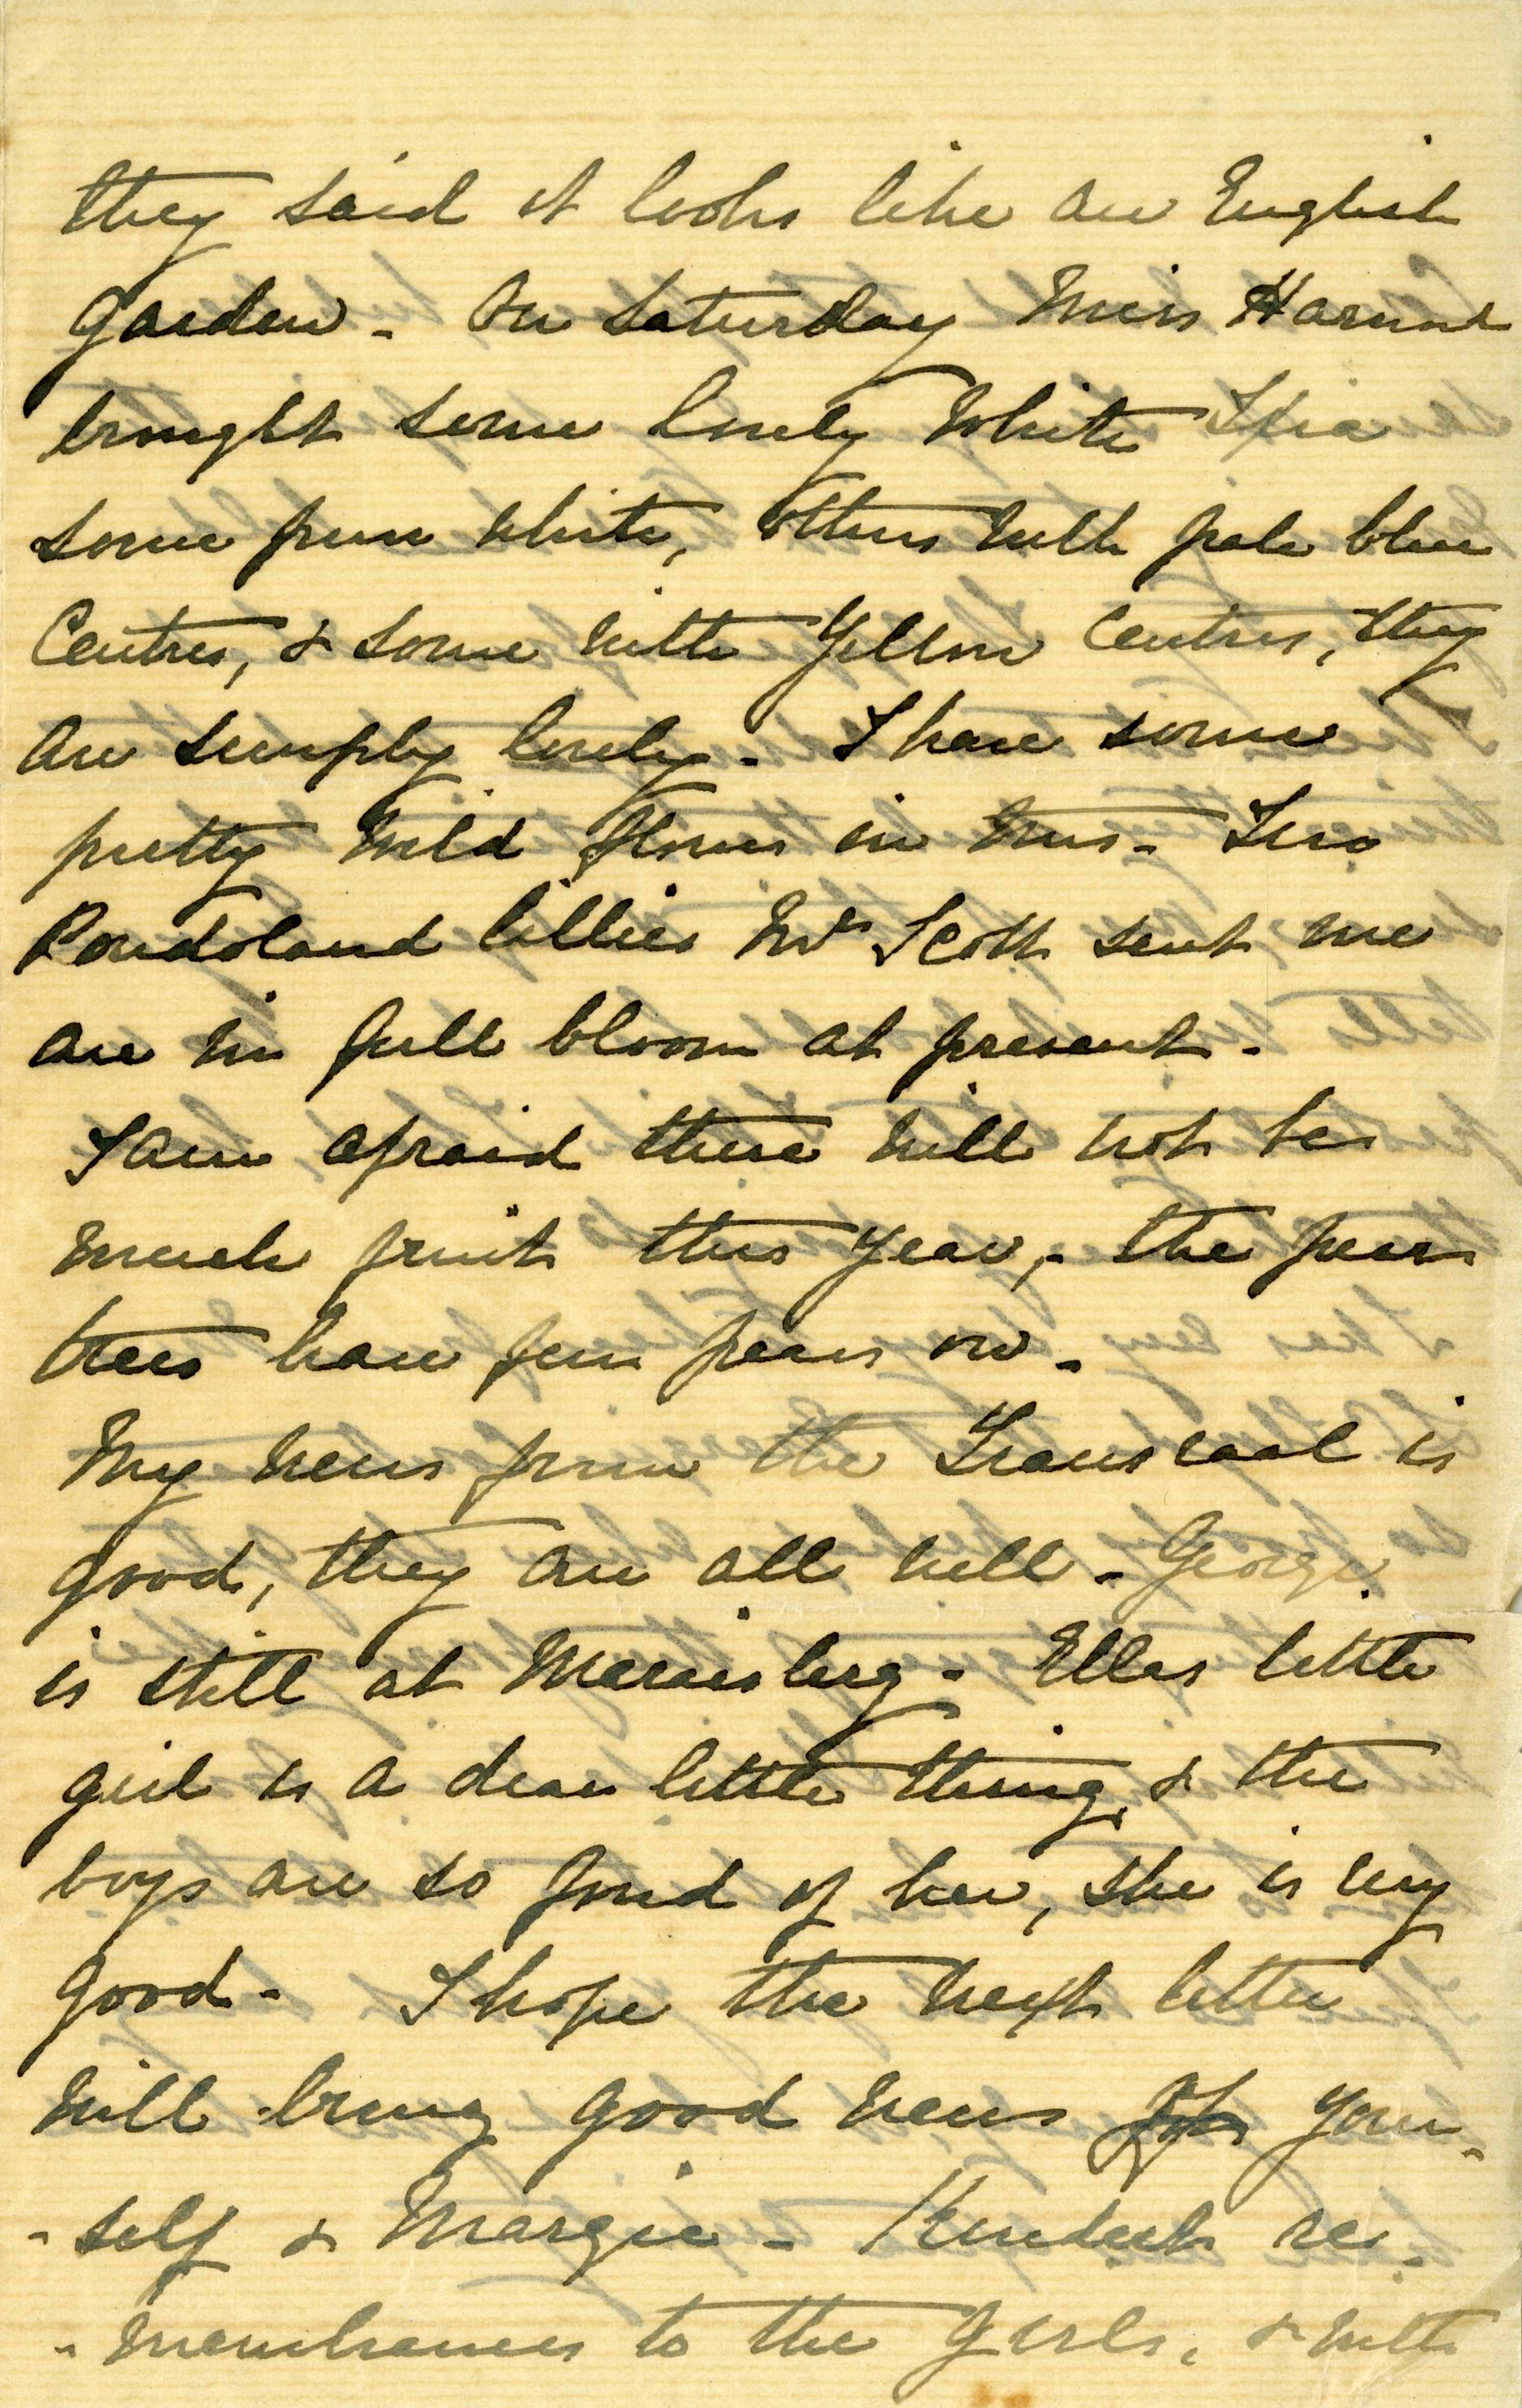 they said it looks like an English
Garden - On Saturday Miss
brought some lovely White Ixia
some pure white, others with pale blue
Centres, & some with Yellow Centres, they
are simply lovely - I have some
pretty wild flowers in too - Two
Pondoland lillies Mr Scott sent me
are in full bloom at present -
I am afraid there will not be
much fruit this year, - the pear
trees have few pears on -
My news from the Transvaal is
good, they are all well - George
is still at Maraisberg - Ellas little
girl is a dear little thing, & the
boys are so fond of her, she is very
good - I hope the next letter
will bring good news of your-
-self & Margie - Kindest re-
-membrances to the Girls, & with